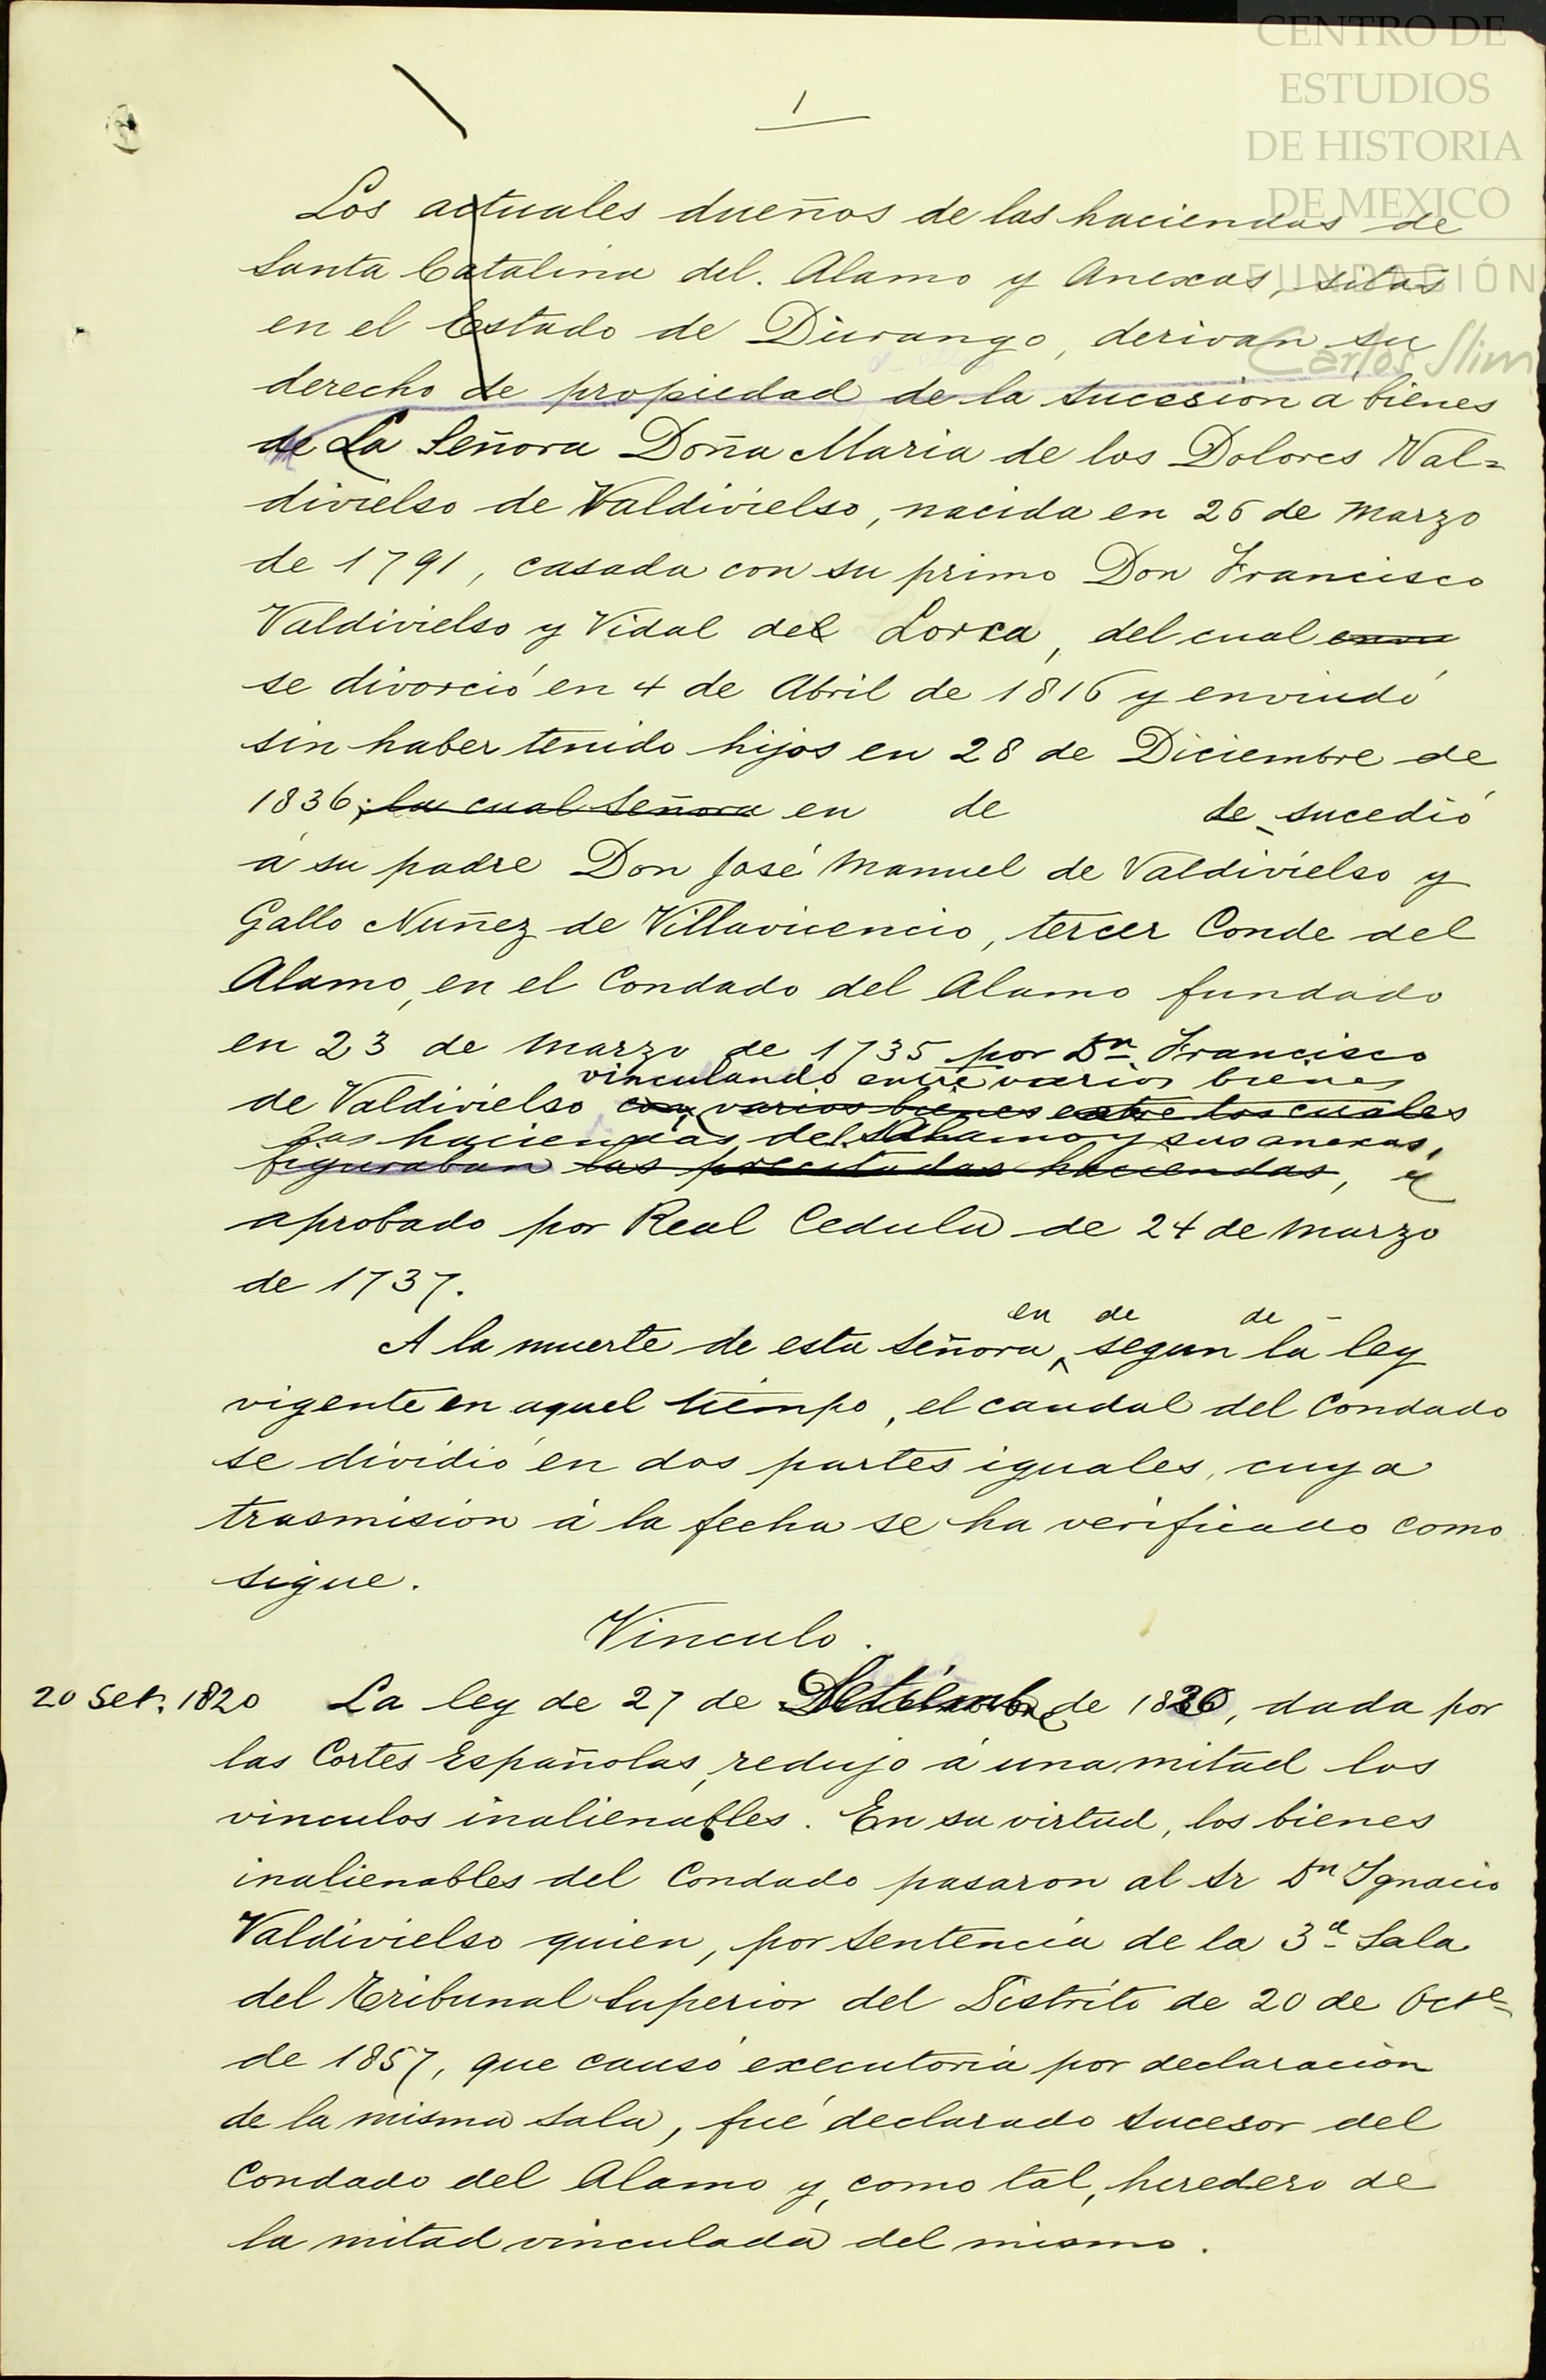 CENTRO DE
ESTUDIOS
DE HISTORIA
DE MEXICO
FUNDACIÓN
Carlos Slim
1
Los actuales dueños de las haciendas de
Santa Catalina del. Alamo y Anexas, sitas
en el Estado de Durango, derivan su
derecho de propiedad de la sucesion á bienes
de La Señora Doña Maria de los Dolores Val=
divielso de Valdivielso, nacida en 26 de Marzo
de 1791, casada con su primo Don Francisco
Valdivielso y Vidal de Lorca, del cual
se divorció en 4 de Abril de 1816 y enviudó
sin haber tenido hijos en 28 de Diciembre de
1836; la cual Señora en de se sucedió
á su padre Don José Manuel de Valdivielso y
Gallo Nuñez de Villavicencio, tercer Conde del
Alamo, en el Condado del Alamo fundado
en 23 de Marzo de 1735 por Dn Francisco
vinculando entre varios bienes
de Valdivielso con varios bienes entre los cuales
las haciendas del Alamo y sus anexas,
figuraban las precitadas haciendas, y
aprobado por Real Cedula de 24 de Marzo
de 1737.
en de de
A la muerte de esta Señora, segun la ley
vigente en aquel tiempo, el caudal del Condado
se dividió en dos partes iguales, cuya
trasmision á la fecha se ha verificado como
sigue.
Vinculo.
20 Set. 1820 La ley de 27 de Setiembre de 1820, dada por
las Cortes Españolas, redujo á una mitad los
vinculos inalienables. En su virtud, los bienes
inalienables del Condado pasaron al Sr Dn Ignacio
Valdivielso quien, por Sentencia de la 3a Sala
del Tribunal Superior del Distrito de 20 de Octe
de 1857, que causó executoria por declaracion
de la misma Sala, fué declarado sucesor del
Condado del Alamo y, como tal, heredero de
la mitad vinculada del mismo.